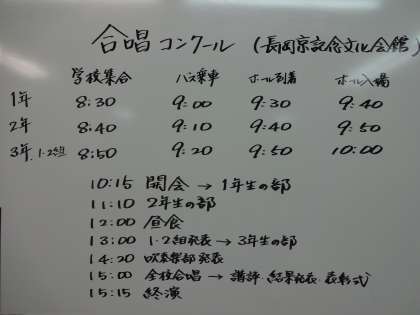 合唱コンクール (長岡京記念文化会館)
学校集合 バス乗車 ホール到着 ホール入場
1年 8:30 9:00 9:30 9:40
2年 8:40 9:10 9:40 9:50
3年.1·2組 8:50 9:20 9:50 10:00
10:15 開会 → 1年生の部
11:10 2年生の部
12:00 昼食
13:00 1·2組発表 → 3年生の部
14:20 吹奏楽部発表
15:00 全校合唱 → 講評.結果発表.表彰式
15:15 終演